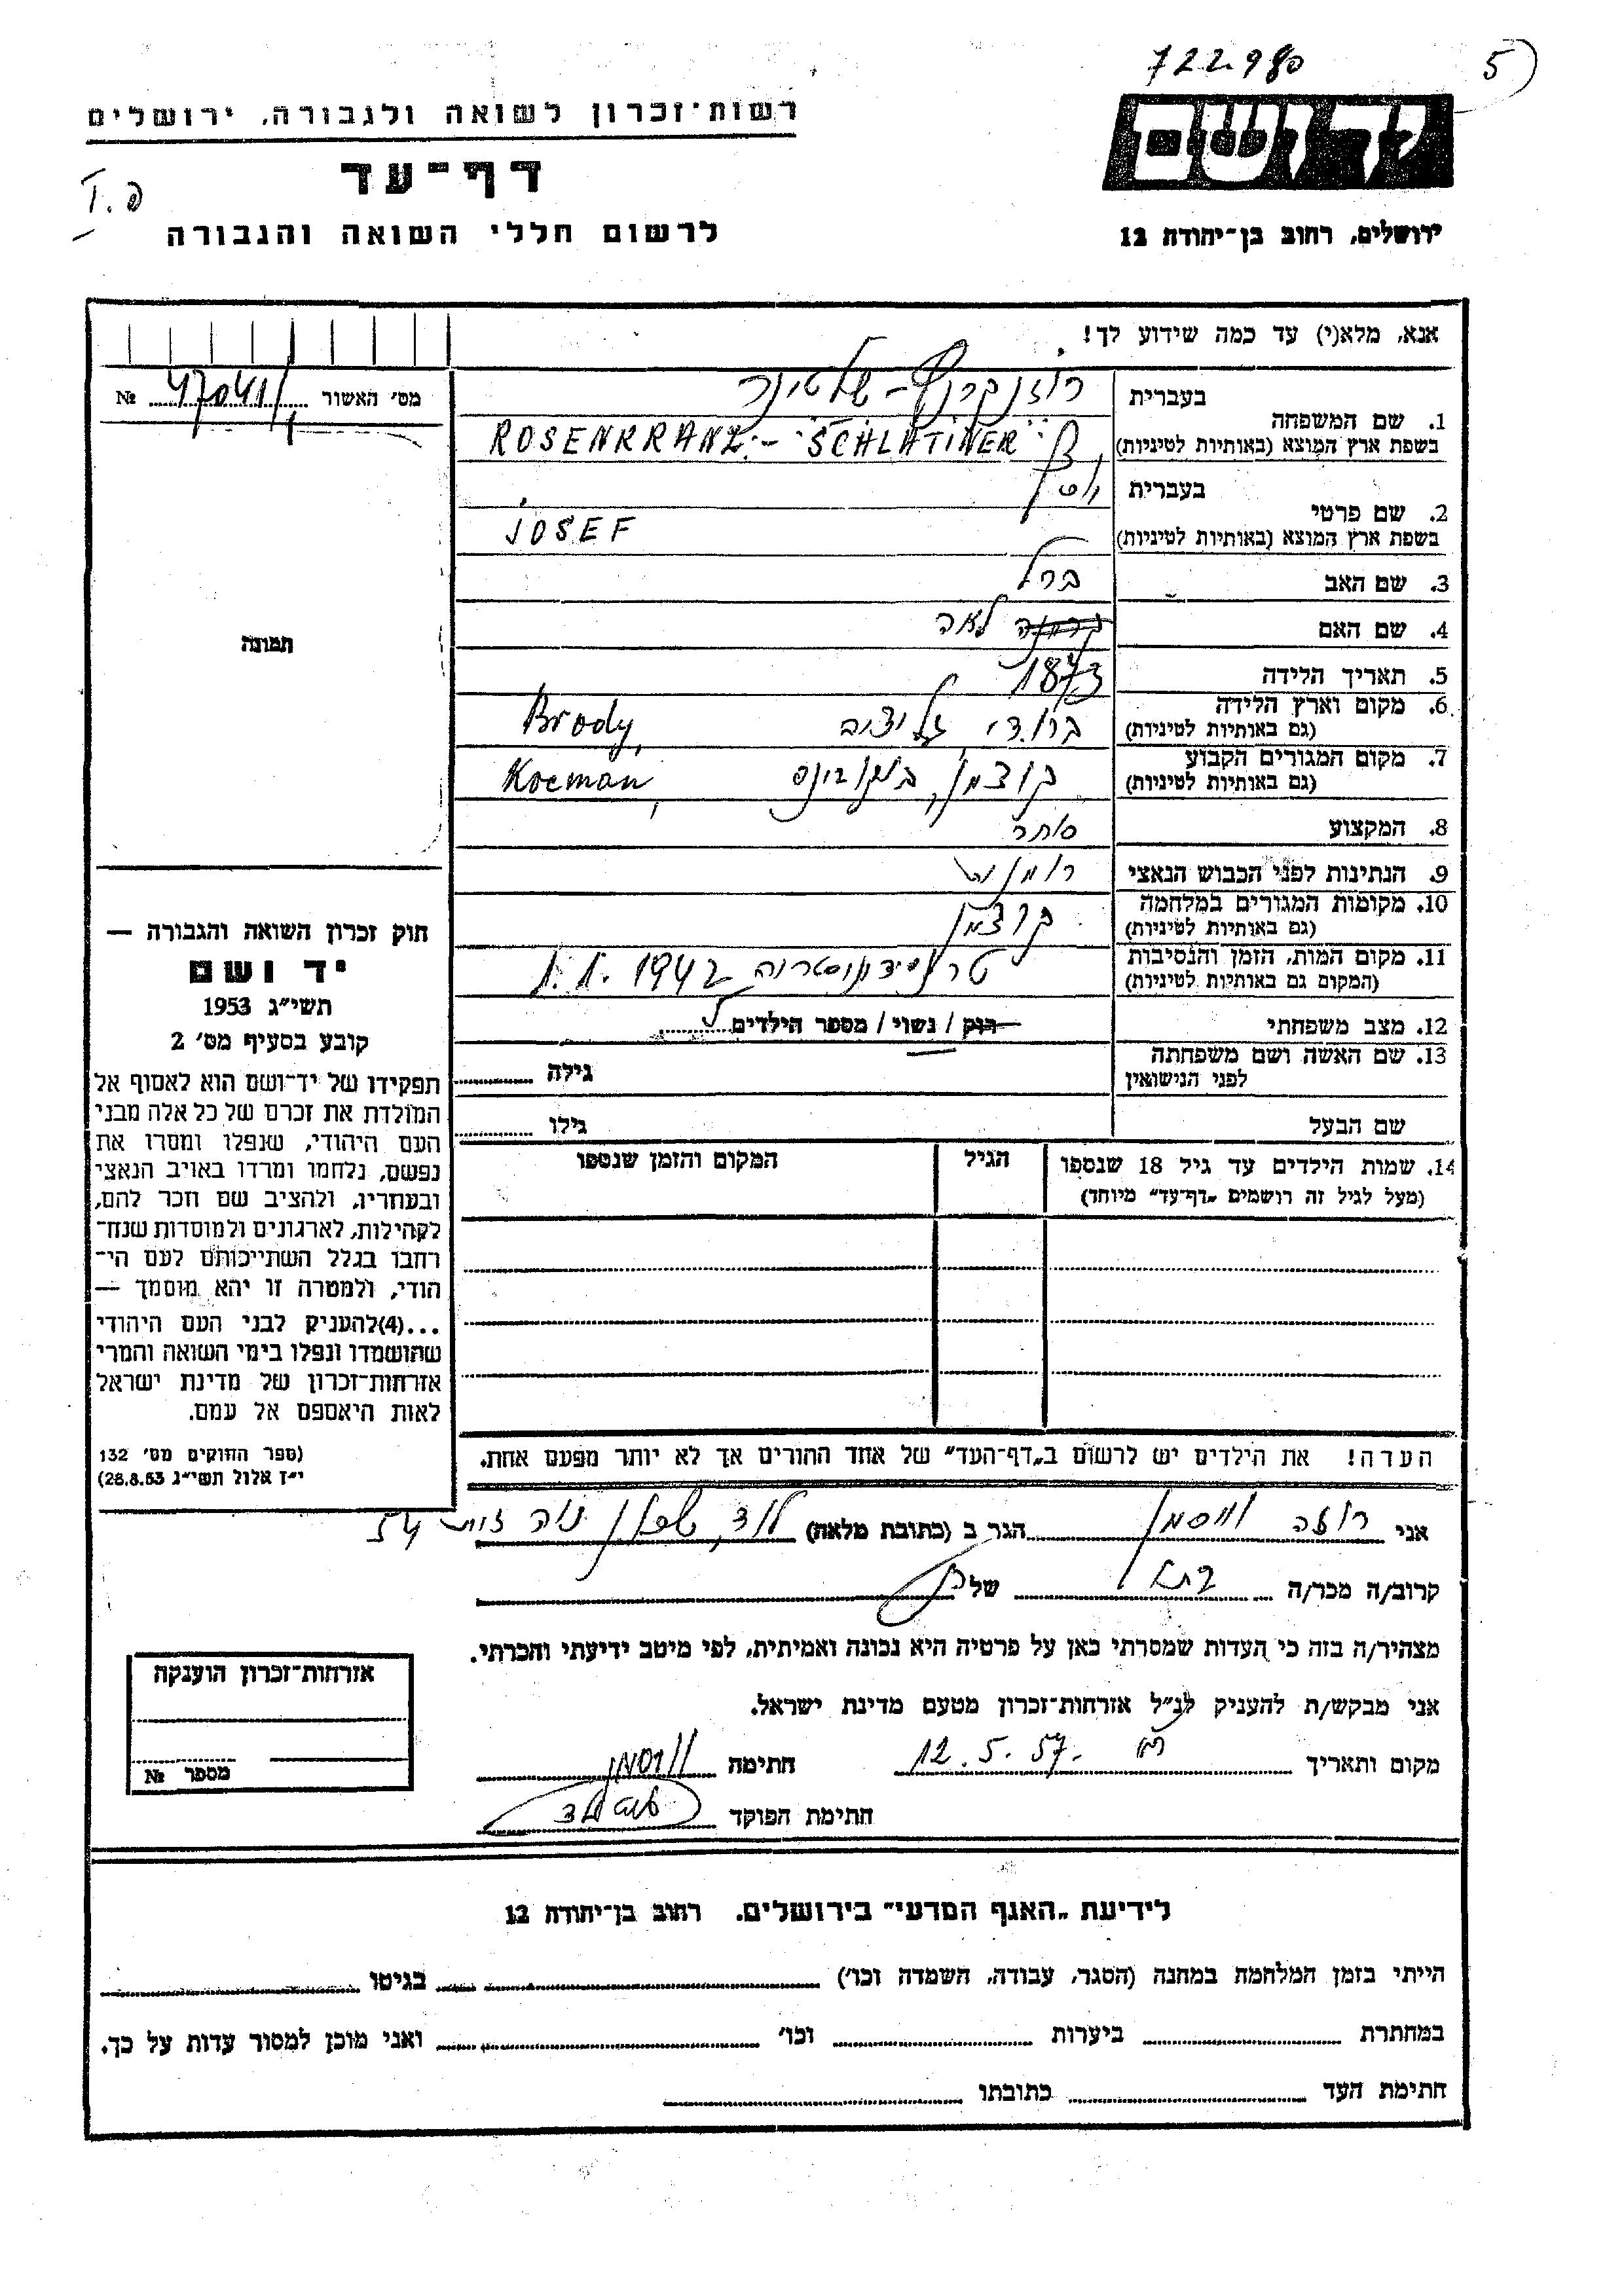 722980
5
רשות־זכרון לשואה ולגבורה, ירושלים
יד ושם
דף־עד
לרשום חללי השואה והגבורה
ירושלים, רחוב בן־יהודה 12
אנא, מלא(י) עד כמה שידוע לך!
מס' האשור 47041 №
תמונה
1. שם המשפחה בעברית רוזנקרנץ - שלטינר
בשפת ארץ המוצא (באותיות לטיניות) ROSENKRANZ - "SCHLATINER"
2. שם פרטי בעברית יוסף
בשפת ארץ המוצא (באותיות לטיניות) JOSEF
3. שם האב ברל
4. שם האם לאה
5. תאריך הלידה 1873
6. מקום וארץ הלידה (גם באותיות לטיניות) ברודי גליציה Brody,
7. מקום המגורים הקבוע (גם באותיות לטיניות) קוצמן, בוקובינה Kocman,
8. המקצוע סוחר
9. הנתינות לפני הכבוש הנאצי רומניה
10. מקומות המגורים במלחמה (גם באותיות לטיניות) קוצמן
11. מקום המות, הזמן והנסיבות (המקום גם באותיות לטיניות) טרנסניסטריה 1942
12. מצב משפחתי רוק / נשוי / מספר הילדים
13. שם האשה ושם משפחתה לפני הנישואין גילה
שם הבעל גילו
14. שמות הילדים עד גיל 18 שנספו (מעל לגיל זה רושמים „דף־עד" מיוחד) הגיל המקום והזמן שנספו
הערה! את הילדים יש לרשום ב„דף־העד" של אחד ההורים אך לא יותר מפעם אחת.
חוק זכרון השואה והגבורה —
יד ושם
תשי"ג 1953
קובע בסעיף מס' 2
תפקידו של יד־ושם הוא לאסוף אל
המולדת את זכרם של כל אלה מבני
העם היהודי, שנפלו ומסרו את
נפשם, נלחמו ומרדו באויב הנאצי
ובעוזריו, ולהציב שם וזכר להם,
לקהילות, לארגונים ולמוסדות שנח־
רבו בגלל השתייכותם לעם הי־
הודי, ולמטרה זו יהא מוסמך —
...(4)להעניק לבני העם היהודי
שהושמדו ונפלו בימי השואה והמרי
אזרחות־זכרון של מדינת ישראל
לאות היאספם אל עמם.
(ספר החוקים מס' 132
י"ז אלול תשי"ג 28.8.53)
אני רוזה וויסמן הגר ב (כתובת מלאה) לוד, שכון נוה זית 54
קרוב/ה מכר/ה בת של
מצהיר/ה בזה כי העדות שמסרתי כאן על פרטיה היא נכונה ואמיתית, לפי מיטב ידיעתי והכרתי.
אני מבקש/ת להעניק לנ"ל אזרחות־זכרון מטעם מדינת ישראל.
מקום ותאריך 12.5.57 חתימה וויסמן
חתימת הפוקד
אזרחות־זכרון הוענקה
מספר №
לידיעת „האגף המדעי" בירושלים. רחוב בן־יהודה 12
הייתי בזמן המלחמה במחנה (הסגר, עבודה, השמדה וכו') בגיטו
במחתרת ביערות וכו' ואני מוכן למסור עדות על כך.
חתימת העד כתובתו